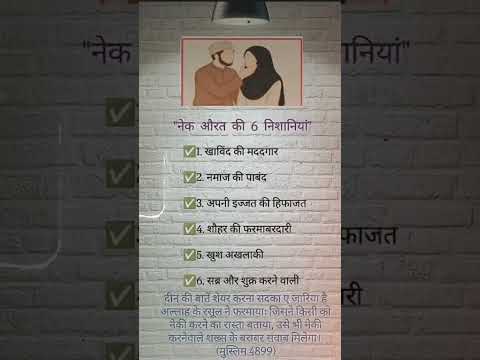 "नेक औरत की 6 निशानियां"
✅1. खाविंद की मददगार
✅2. नमाज की पाबंद
✅3. अपनी इज्जत की हिफाजत
✅4. शौहर की फरमाबरदारी
✅5. खुश अखलाकी
✅6. सब्र और शुक्र करने वाली
दीन की बातें शेयर करना सदका ए जारिया है
अल्लाह के रसूल ने फरमाया: जिसने किसी को
नेकी करने का रास्ता बताया, उसे भी नेकी
करनेवाले शख्स के बराबर सवाब मिलेगा।
(मुस्लिम 4899)